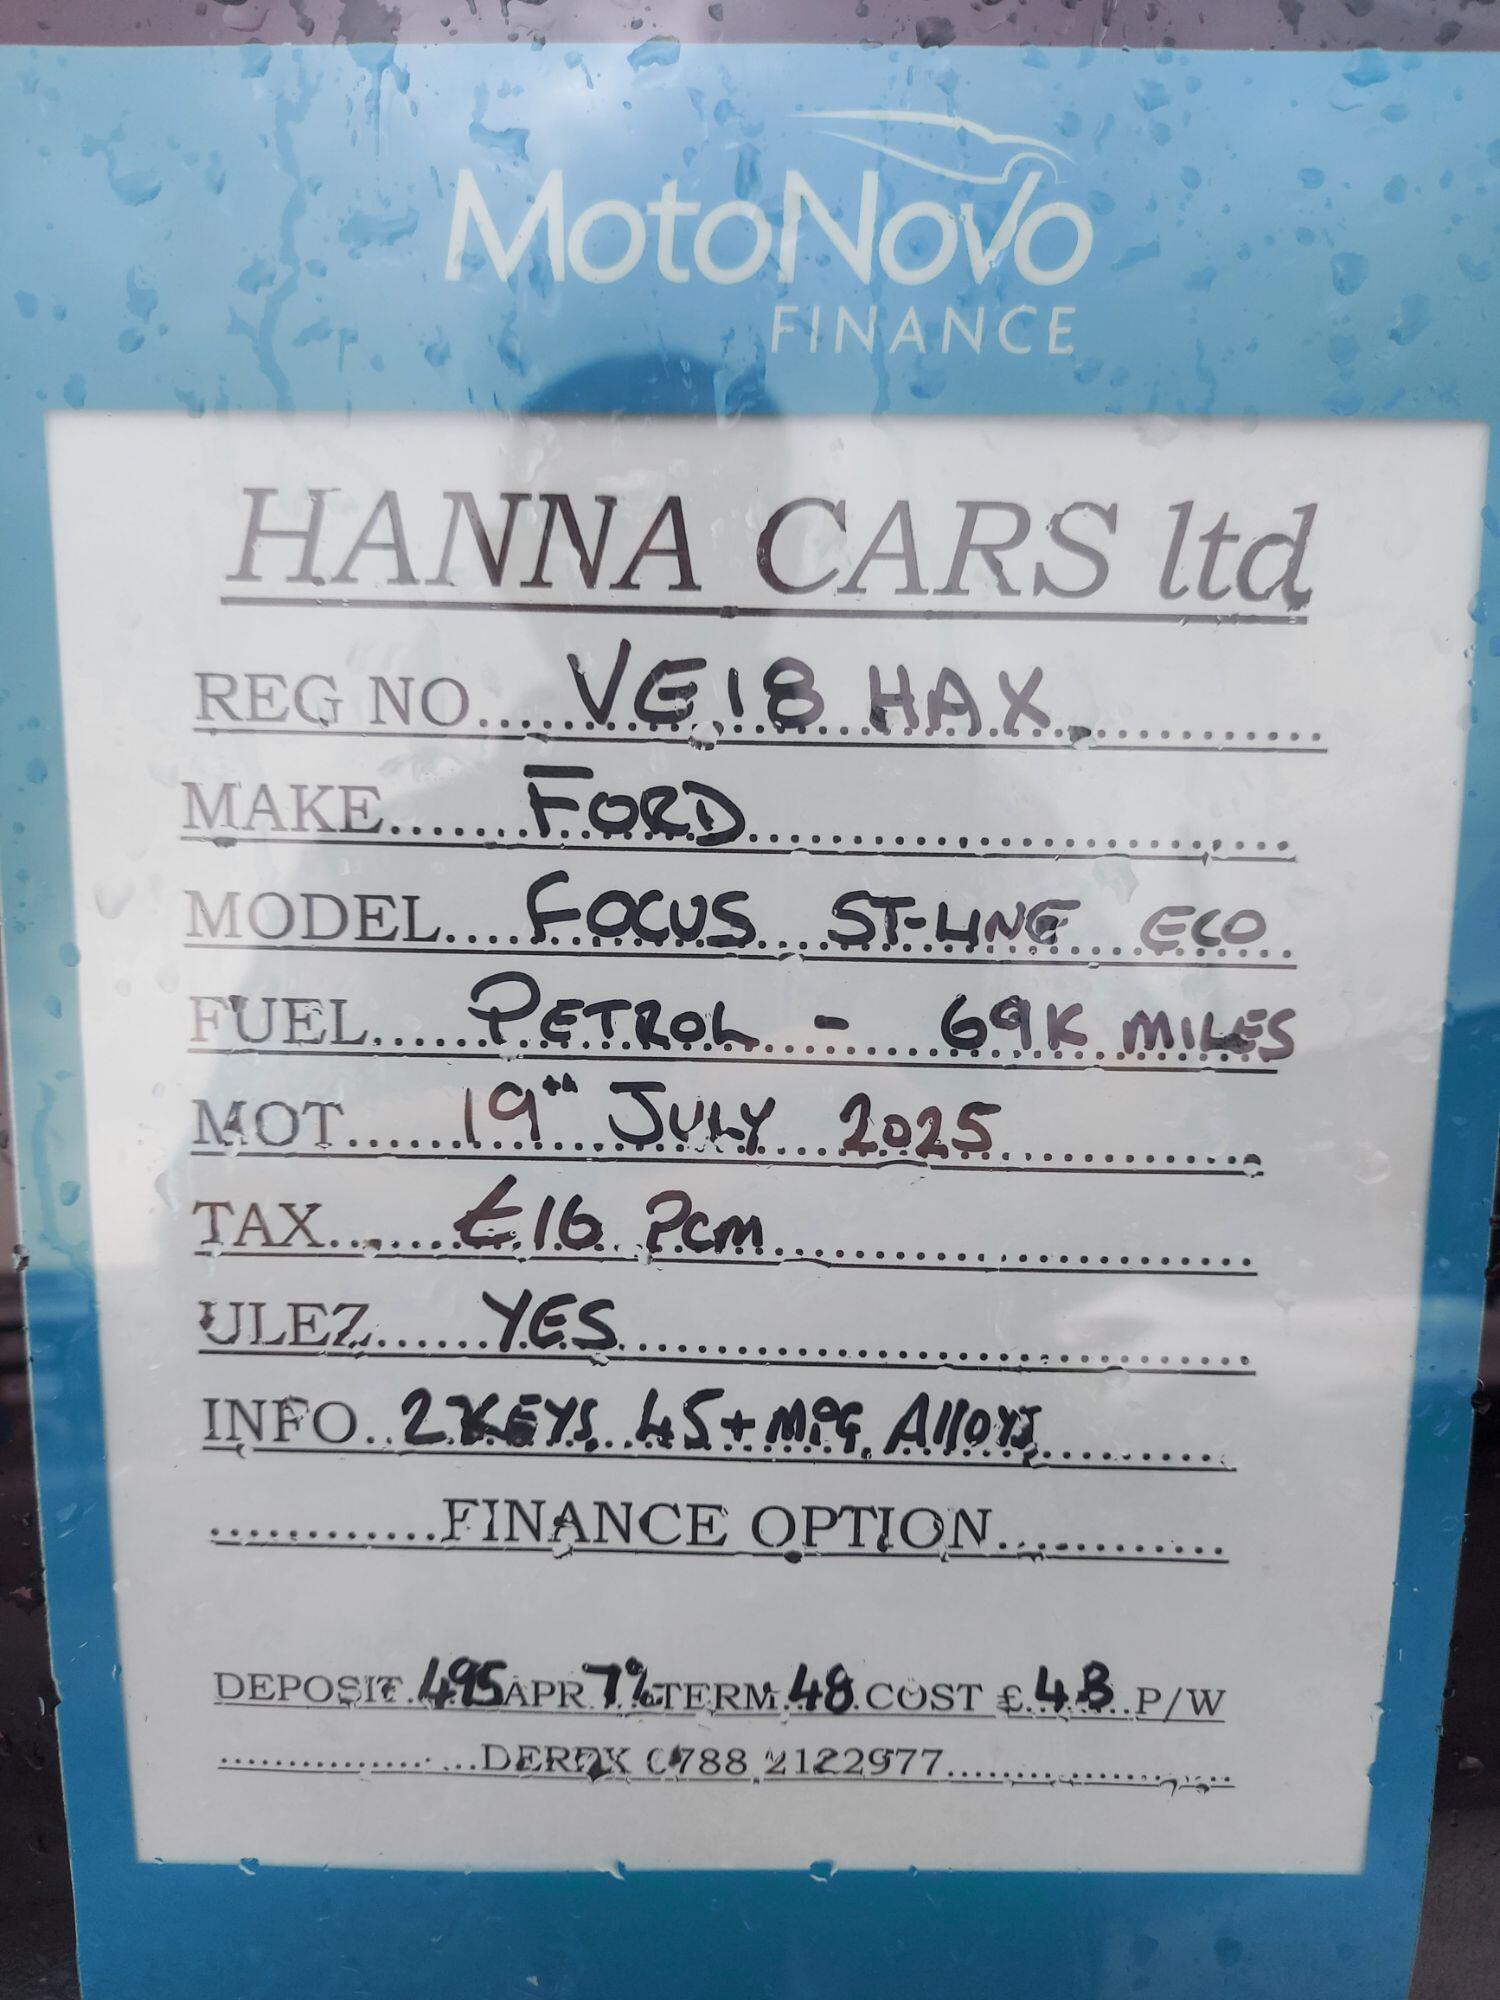 MotoNovo
FINANCE
HANNA CARS ltd
REG NO......VE18 HAX..............
MAKE.......FORD..............................
MODEL....FOCUS....ST-LINE...ECO
FUEL....PETROL - 69K MILES
MOT......19th JULY 2025..............
TAX.......£16 PCM..........................
ULEZ......YES..................................
INFO..2 KEYS. 45+ MPG. Alloys..........
............FINANCE OPTION............
DEPOSIT.495 APR 7% TERM.48.COST £.48..P/W
................DEREK 0788 2122977................